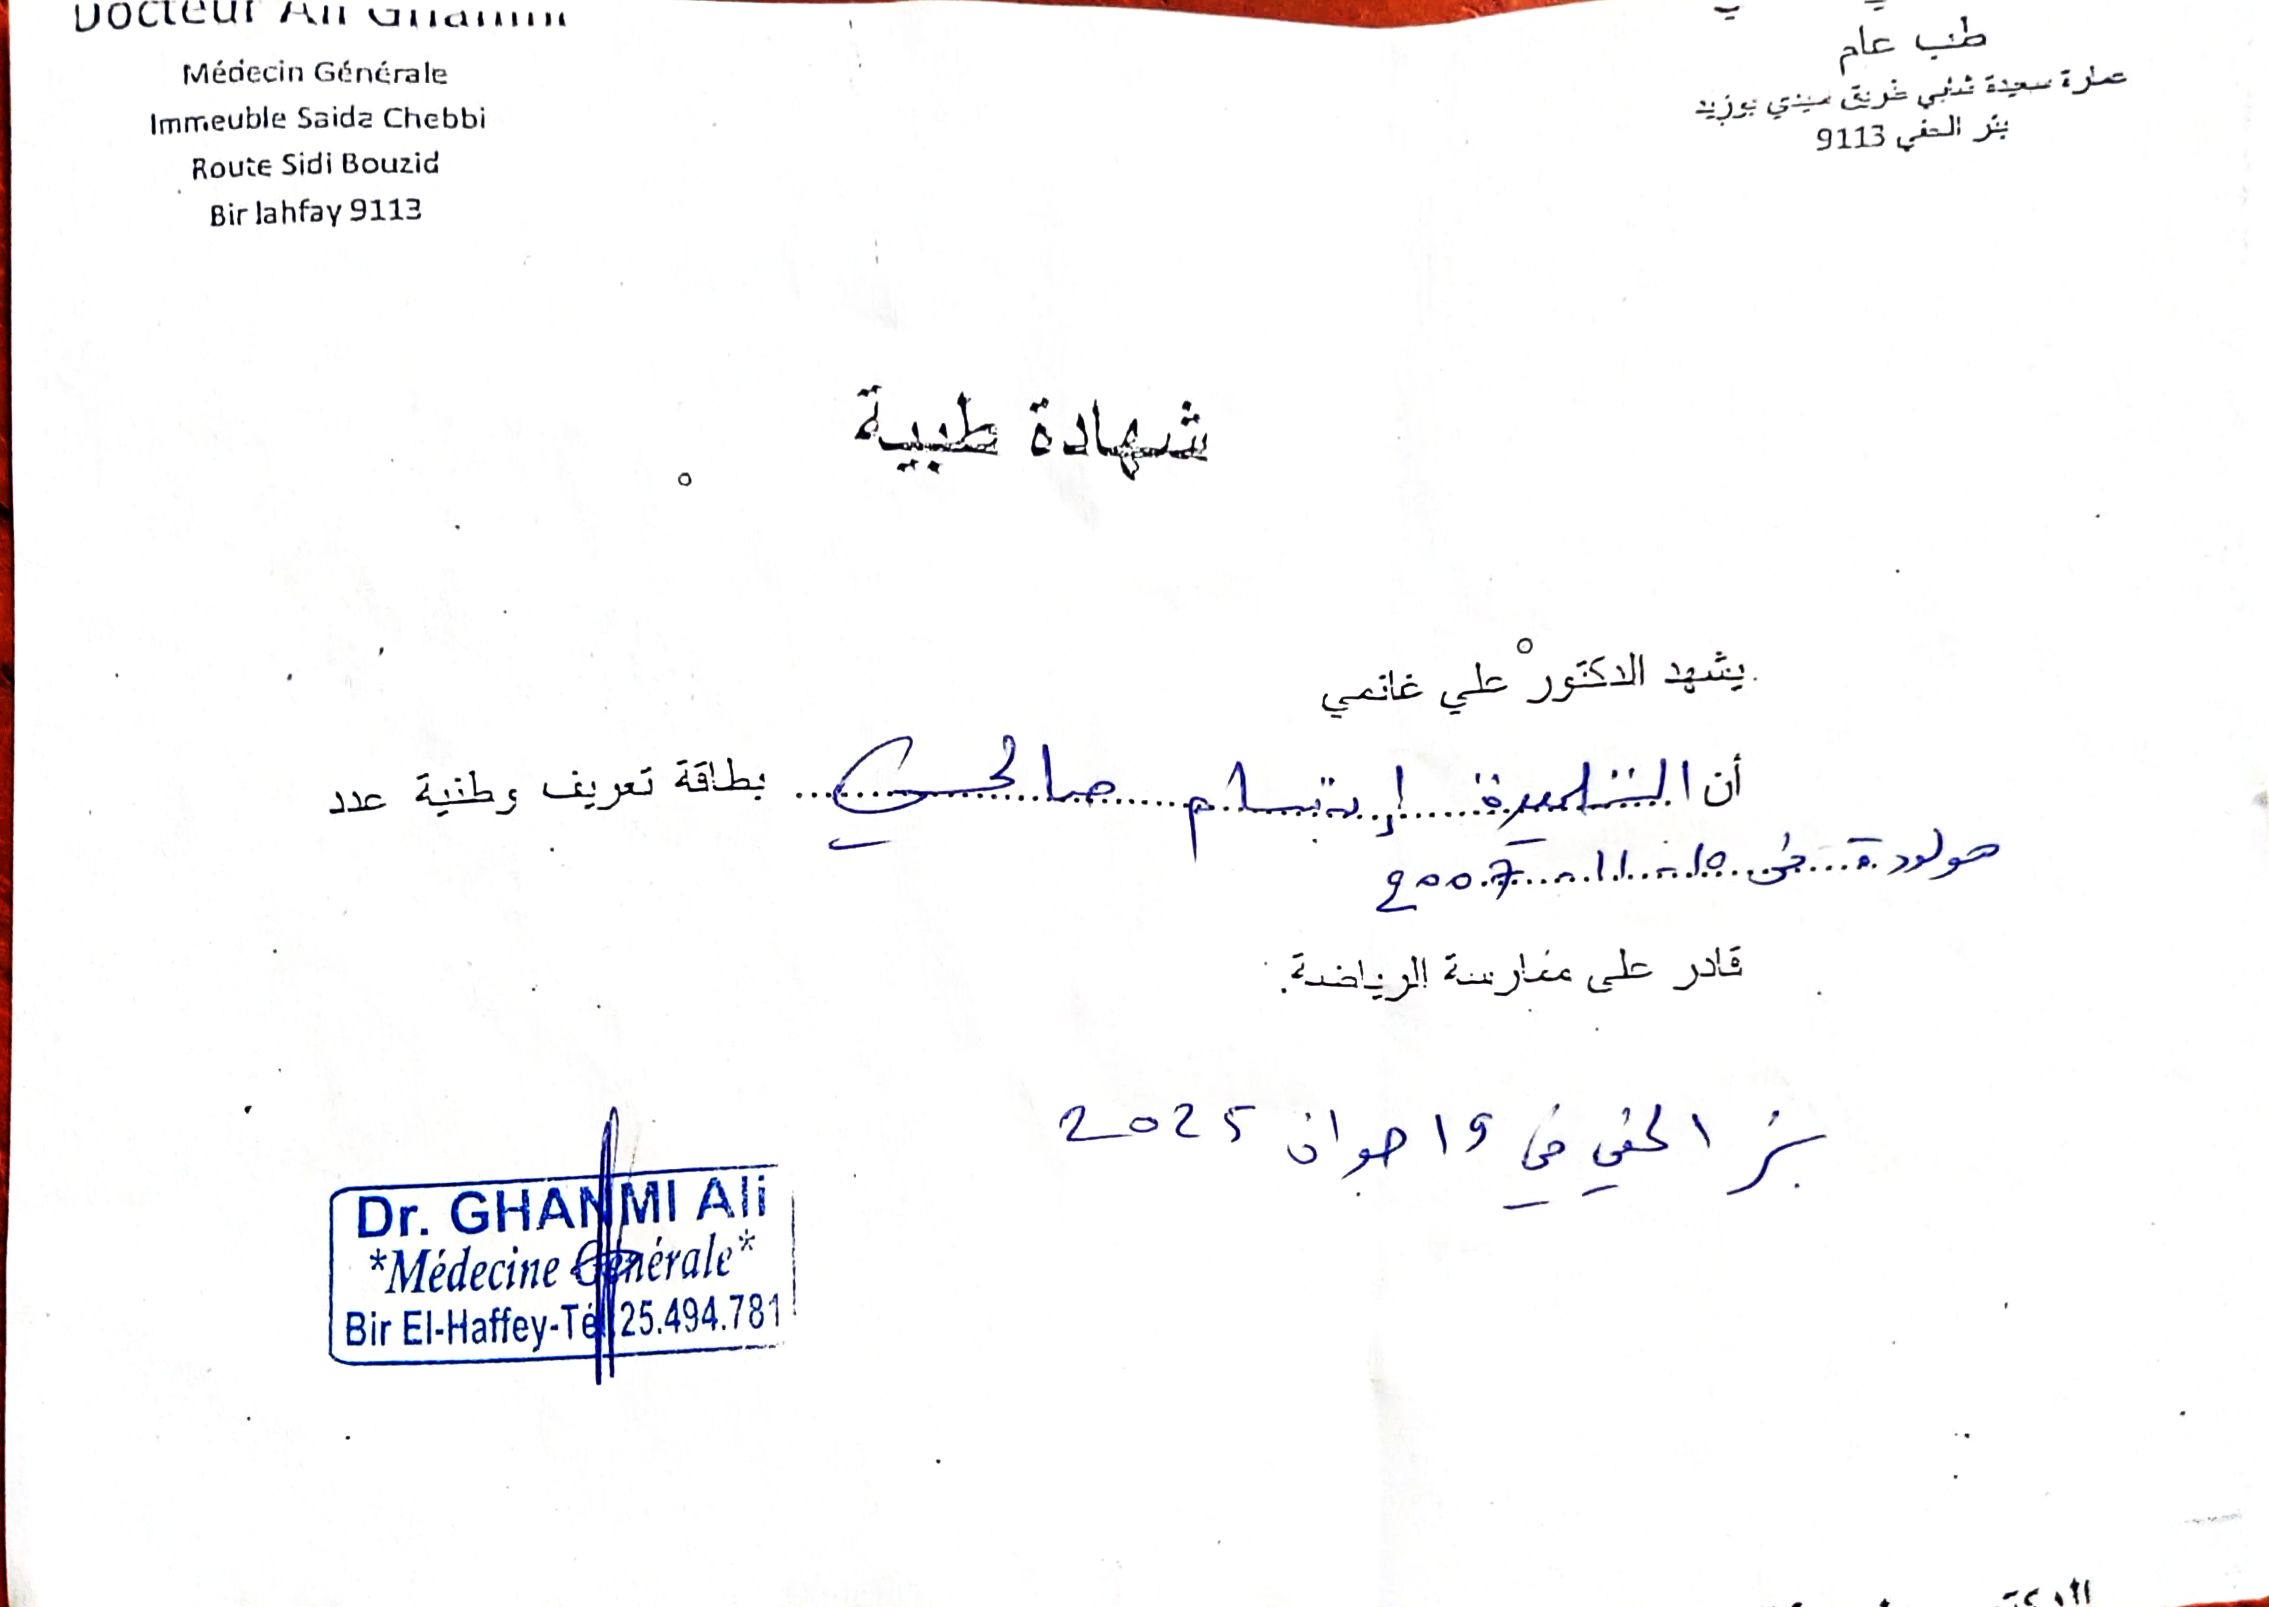 Docteur Ali Ghanmi
Médecin Générale
Immeuble Saida Chebbi
Route Sidi Bouzid
Bir lahfay 9113
طب عام
عمارة سعيدة شابي طريق سيدي بوزيد
بئر الحفي 9113
شهادة طبية
يشهد الدكتور علي غانمي
أن التلميذة إبتسام صالحي بطاقة تعريف وطنية عدد
مولودة في 15 - 11 - 2007
قادر على ممارسة الرياضة.
بئر الحفي في 19 جوان 2025
Dr. GHANMI Ali
*Médecine Générale*
Bir El-Haffey-Tél 25.494.781